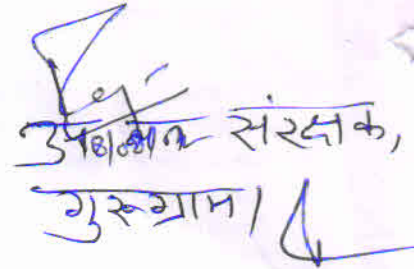 उप वन संरक्षक,
गुरुग्राम।